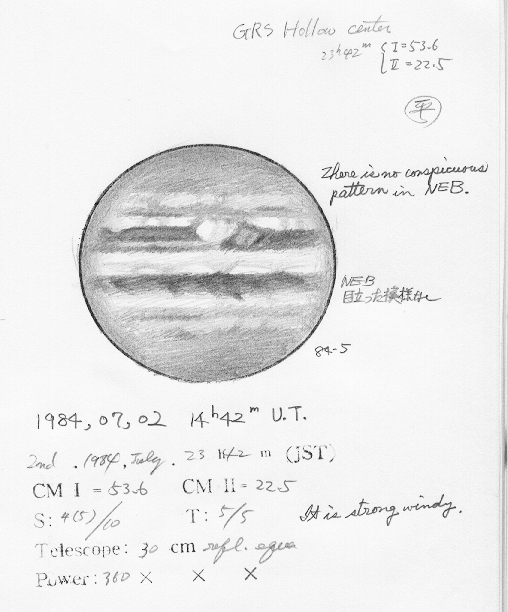 GRS Hollow center
23ʰ42ᵐ { I = 53.6
II = 22.5
平
There is no conspicuous
pattern in NEB.
NEB
目立った模様なし
84-5
1984, 07, 02 14ʰ42ᵐ U.T.
2nd . 1984, July . 23 H42 m (JST)
CM I = 53.6 CM II = 22.5
S: 4(5)/10 T: 5/5 It is strong windy.
Telescope: 30 cm refl. equa
Power: 360 × × ×